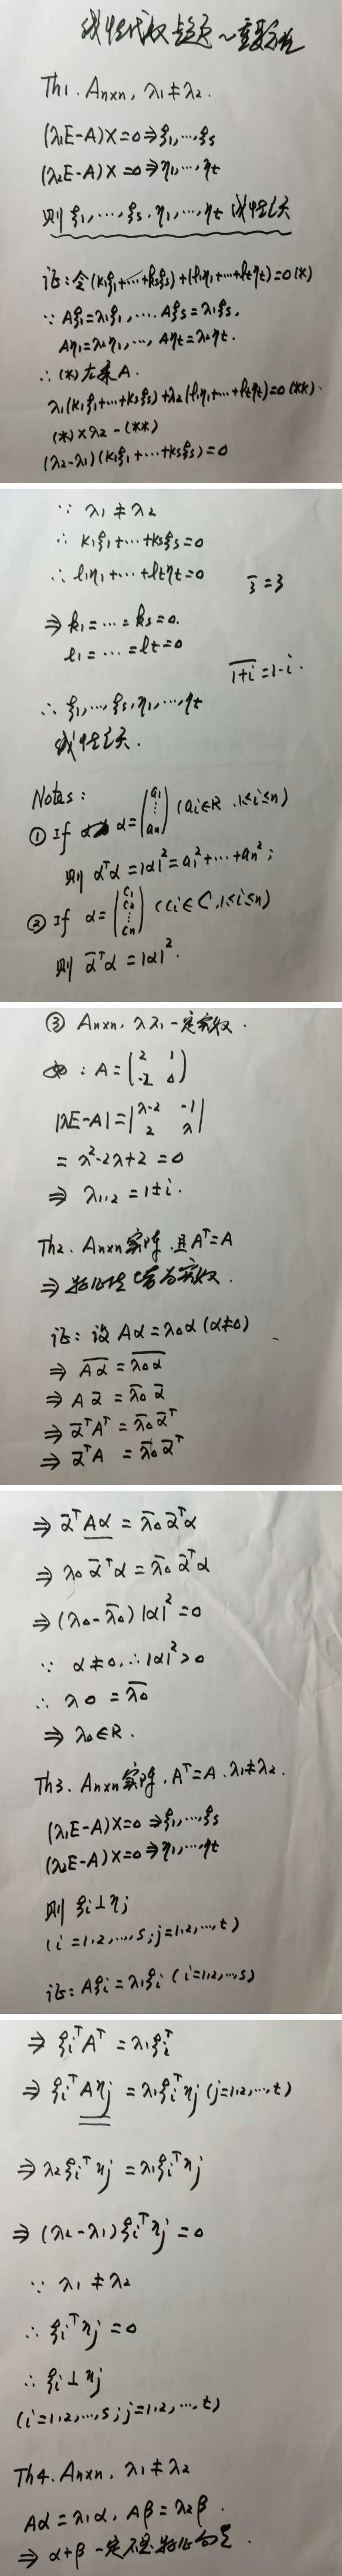 线性代数专题~重要定理
Th1. An×n, λ1≠λ2.
(λ1E-A)X=0⇒ξ1,…,ξs
(λ2E-A)X=0⇒η1,…,ηt
则 ξ1,…,ξs,η1,…,ηt 线性无关
证:令(k1ξ1+…+ksξs)+(l1η1+…+ltηt)=0(*)
∵ Aξ1=λ1ξ1,…,Aξs=λ1ξs,
Aη1=λ2η1,…,Aηt=λ2ηt.
∴ (*)左乘A.
λ1(k1ξ1+…+ksξs)+λ2(l1η1+…+ltηt)=0(**).
(*)×λ2-(**)
(λ2-λ1)(k1ξ1+…+ksξs)=0
∵ λ1≠λ2
∴ k1ξ1+…+ksξs=0
∴ l1η1+…+ltηt=0
3̅=3
⇒ k1=…=ks=0.
l1=…=lt=0
\overline{1+i}=1-i.
∴ ξ1,…,ξs,η1,…,ηt
线性无关.
Notes:
① If α=(a1 ⋮ an) (ai∈R,1≤i≤n)
则 α^Tα=|α|²=a1²+…+an²;
② If α=(c1 c2 ⋮ cn) (ci∈C,1≤i≤n)
则 α̅^Tα=|α|².
③ An×n, λ不一定实数.
如:A=(2 1 -2 0)
|λE-A|=|λ-2 -1 2 λ|
=λ²-2λ+2=0
⇒ λ1,2=1±i.
Th2. An×n实阵,且A^T=A
⇒特征值皆为实数.
证:设Aα=λ0α(α≠0)
⇒ \overline{Aα}=\overline{λ0α}
⇒ Aα̅=λ̅0α̅
⇒ α̅^TA^T=λ̅0α̅^T
⇒ α̅^TA=λ̅0α̅^T
⇒ α̅^TAα=λ̅0α̅^Tα
⇒ λ0α̅^Tα=λ̅0α̅^Tα
⇒ (λ0-λ̅0)|α|²=0
∵ α≠0,∴|α|²>0
∴ λ0=λ̅0
⇒ λ0∈R.
Th3. An×n实阵,A^T=A.λ1≠λ2.
(λ1E-A)X=0⇒ξ1,…,ξs
(λ2E-A)X=0⇒η1,…,ηt
则 ξi⊥ηj
(i=1,2,…,s;j=1,2,…,t)
证:Aξi=λ1ξi(i=1,2,…,s)
⇒ ξi^TA^T=λ1ξi^T
⇒ ξi^TAηj=λ1ξi^Tηj(j=1,2,…,t)
⇒ λ2ξi^Tηj=λ1ξi^Tηj
⇒ (λ2-λ1)ξi^Tηj=0
∵ λ1≠λ2
∴ ξi^Tηj=0
∴ ξi⊥ηj
(i=1,2,…,s;j=1,2,…,t)
Th4. An×n, λ1≠λ2
Aα=λ1α,Aβ=λ2β.
⇒ α+β一定不是特征向量.